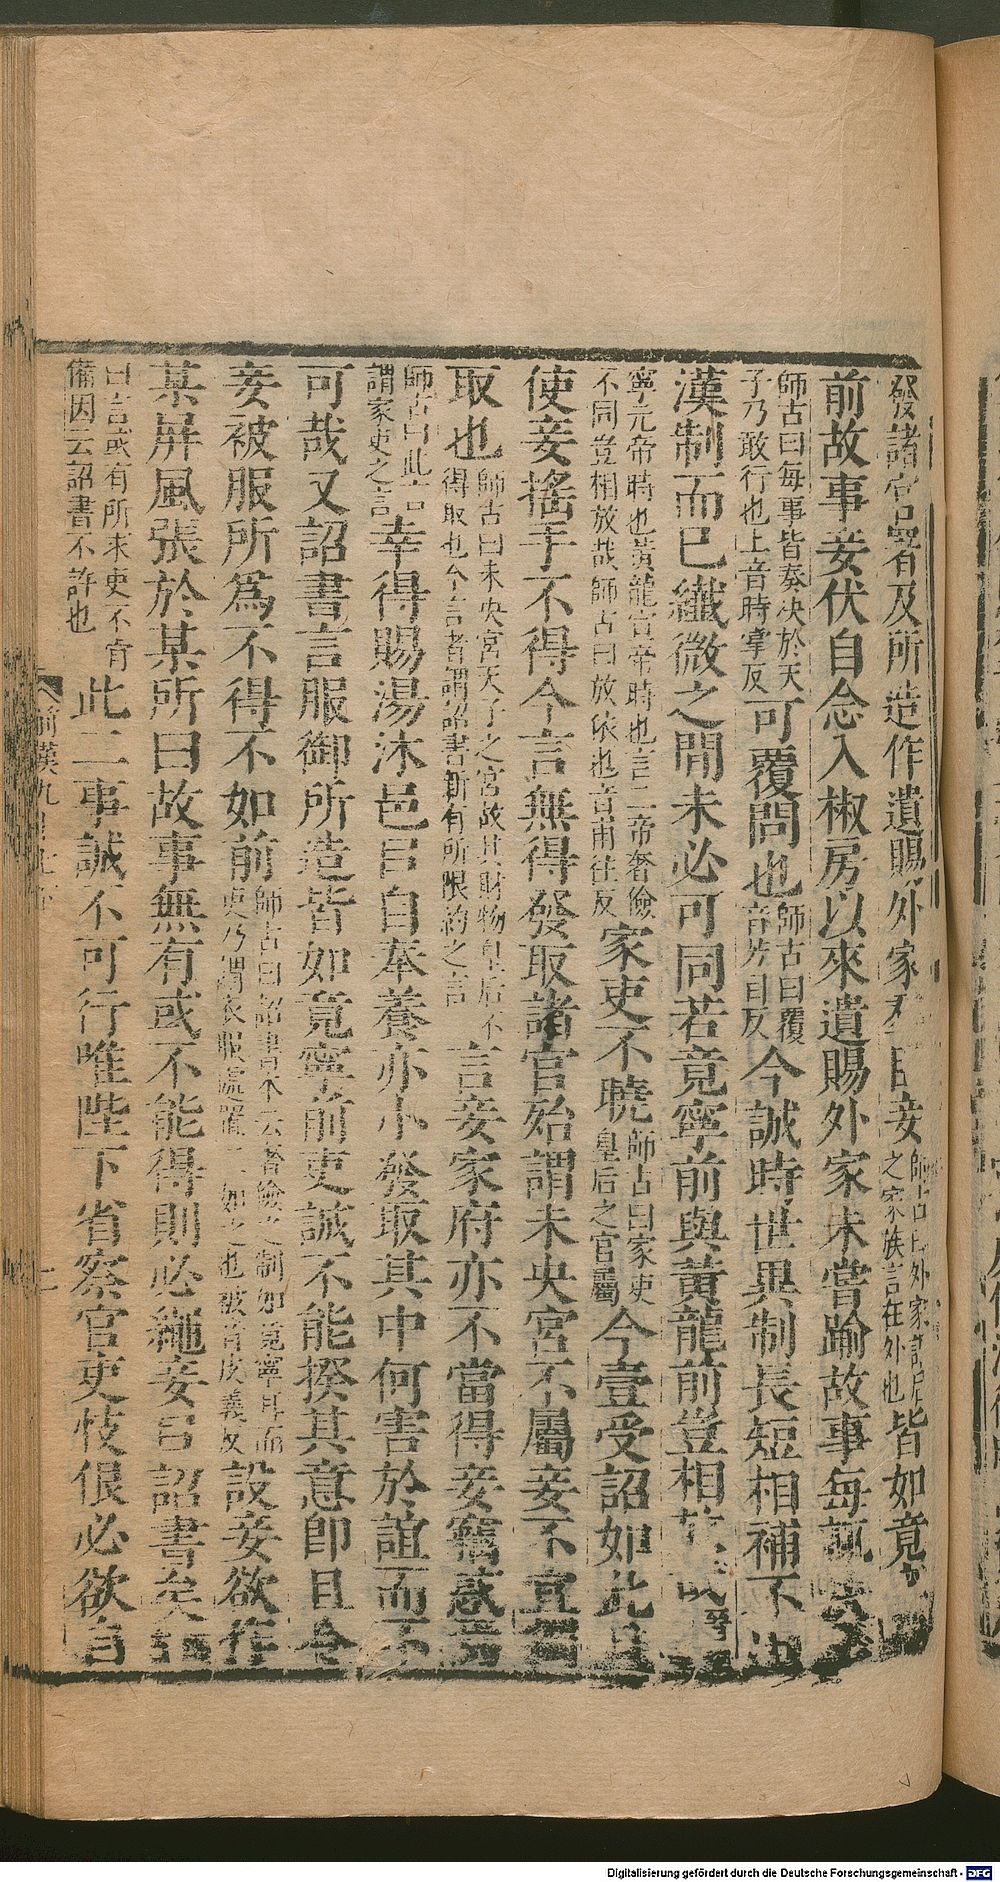 發諸官署及所造作遺賜外家羣臣妾師古曰外家謂后之家族言在外也皆如竟
前故事妾伏自念入椒房以來遺賜外家未嘗踰故事每輒
師古曰每事皆奏決於天子乃敢行也上音時掌反可覆問也師古曰覆音芳目反今誠時世異制長短相補不
漢制而已纖微之閒未必可同若竟寧前與黃龍前豈相
寧元帝時也黃龍宣帝時也言二帝奢儉不同豈相放哉師古曰放依也音甫往反家吏不曉師古曰家吏皇后之官屬今壹受詔如此且
使妾搖手不得今言無得發取諸官殆謂未央宮不屬妾不宜
取也師古曰未央宮天子之宮故其財物皇后不得取也今言者謂詔書新有所限約之言言妾家府亦不當得妾竊惑
師古曰此言謂家吏之言幸得賜湯沐邑㠯自奉養亦小發取其中何害於誼而不
可哉又詔書言服御所造皆如竟寧前吏誠不能揆其意即且令
妾被服所爲不得不如前師古曰詔書本云奢儉之制如竟寧耳而吏乃謂衣服處置一一如之也被音皮義反設妾欲作
某屏風張於某所曰故事無有或不能得則必繩妾㠯詔書矣
曰言或有所求吏不肯備因云詔書不許也此二事誠不可行唯陛下省察官吏忮佷必欲自
前漢九
Digitalisierung gefördert durch die Deutsche Forschungsgemeinschaft - DFG